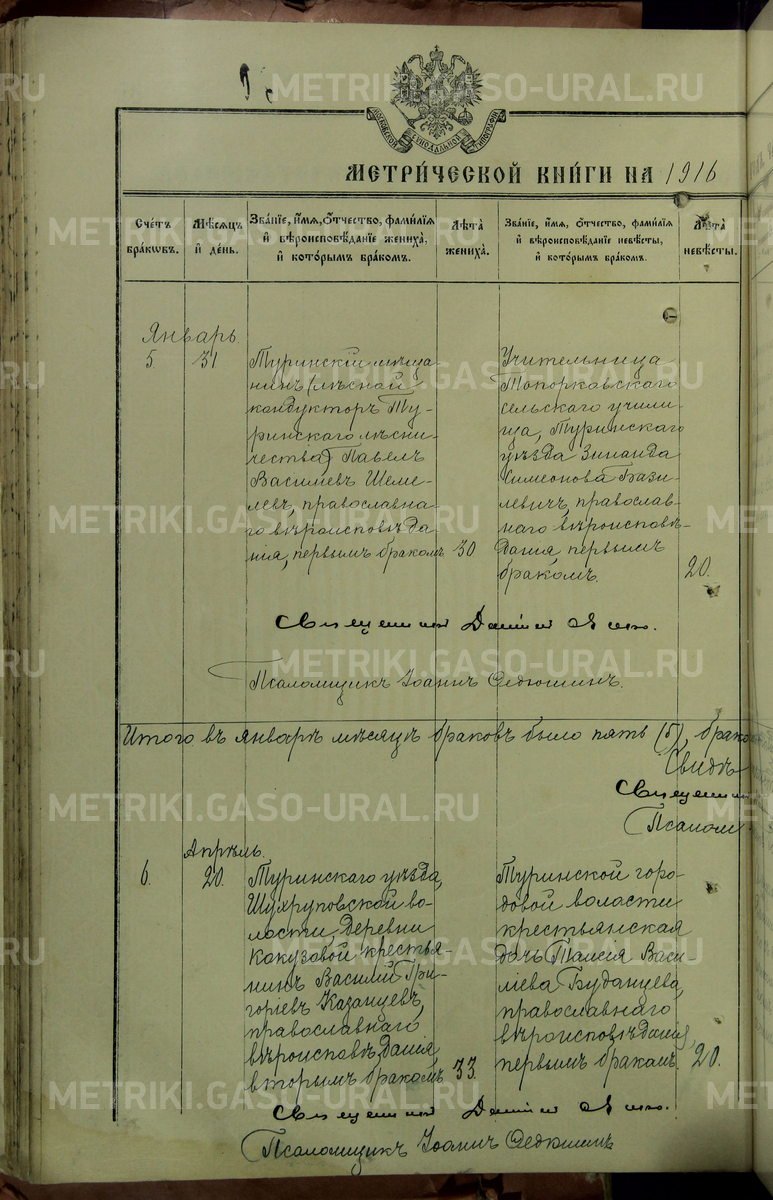 МОСКОВСКОЙ СѴНОДАЛЬНОЙ ТИПОГРАФІИ
МЕТРИ́ЧЕСКОЙ КНИ́ГИ НА 1916
Сче́тъ бра́кѡвъ.
Мѣ́сяцъ и҆ де́нь.
Зва́нїе, и҆́мѧ, ѻ҆́тчество, фами́лїѧ
и҆ вѣроисповѣ́данїе жениха̀,
и҆ кото́рымъ бра́комъ.
Лѣ́та жениха̀.
Зва́нїе, и҆́мѧ, ѻ҆́тчество, фами́лїѧ
и҆ вѣроисповѣ́данїе невѣ́сты,
и҆ кото́рымъ бра́комъ.
Лѣ́та невѣ́сты.
Январь
5
31
Туринскій мѣща-
нинъ (лѣсной
кондукторъ Ту-
ринскаго лѣсни-
чества) Павелъ
Василіевъ Шеме-
левъ, православна-
го вѣроисповѣда-
нія, первымъ бракомъ
30
Учительница
Топорковскаго
сельскаго учили-
ща, Туринскаго
уѣзда Зинаида
Симеонова Бази-
левичъ, православ-
наго вѣроисповѣ-
данія, первымъ
бракомъ.
20.
Священникъ
Псаломщикъ Іоаннъ Федюшинъ.
Итого въ январѣ мѣсяцѣ браковъ было пять (5), брако
Свидѣ
Священни
Псалом
Апрѣль.
6.
20.
Туринскаго уѣзда,
Шухруповской во-
лости, деревни
Кокузовой кресть-
янинъ Василій Гри-
горіевъ Казанцевъ,
православнаго
вѣроисповѣданія,
вторымъ бракомъ
33.
Туринской горо-
довой волости
крестьянская
дочь Таисія Васи-
ліева Буданцева,
православнаго
вѣроисповѣданія,
первымъ бракомъ.
20.
Священникъ
Псаломщикъ Іоаннъ Федюшинъ
METRIKI.GASO-URAL.RU